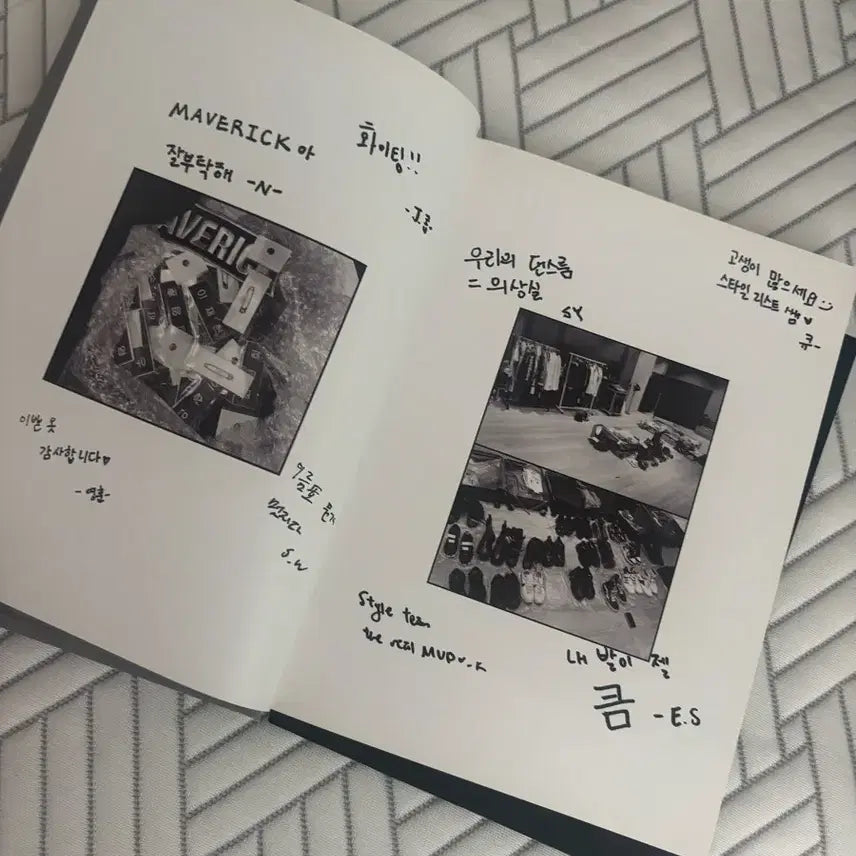 MAVERICK아
잘부탁해 -N-
화이팅!!
AVERIC
이번 옷
감사합니다♡
-영훈-
이름표
멋지다
S.W
우리의 댄스룸
= 의상실
SY
고생이 많으세요 :)
스타일리스트 쌤♥
큐-
Style team
the real MVP♡-K
내 발이 젤
큼 -E.S